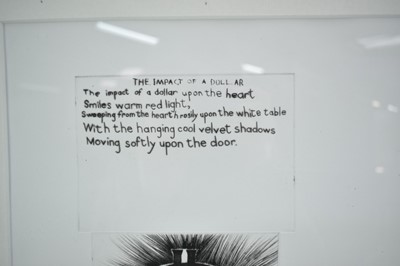 THE IMPACT OF A DOLLAR
The impact of a dollar upon the heart
Smiles warm red light,
Sweeping from the hearth rosily upon the white table
With the hanging cool velvet shadows
Moving softly upon the door.